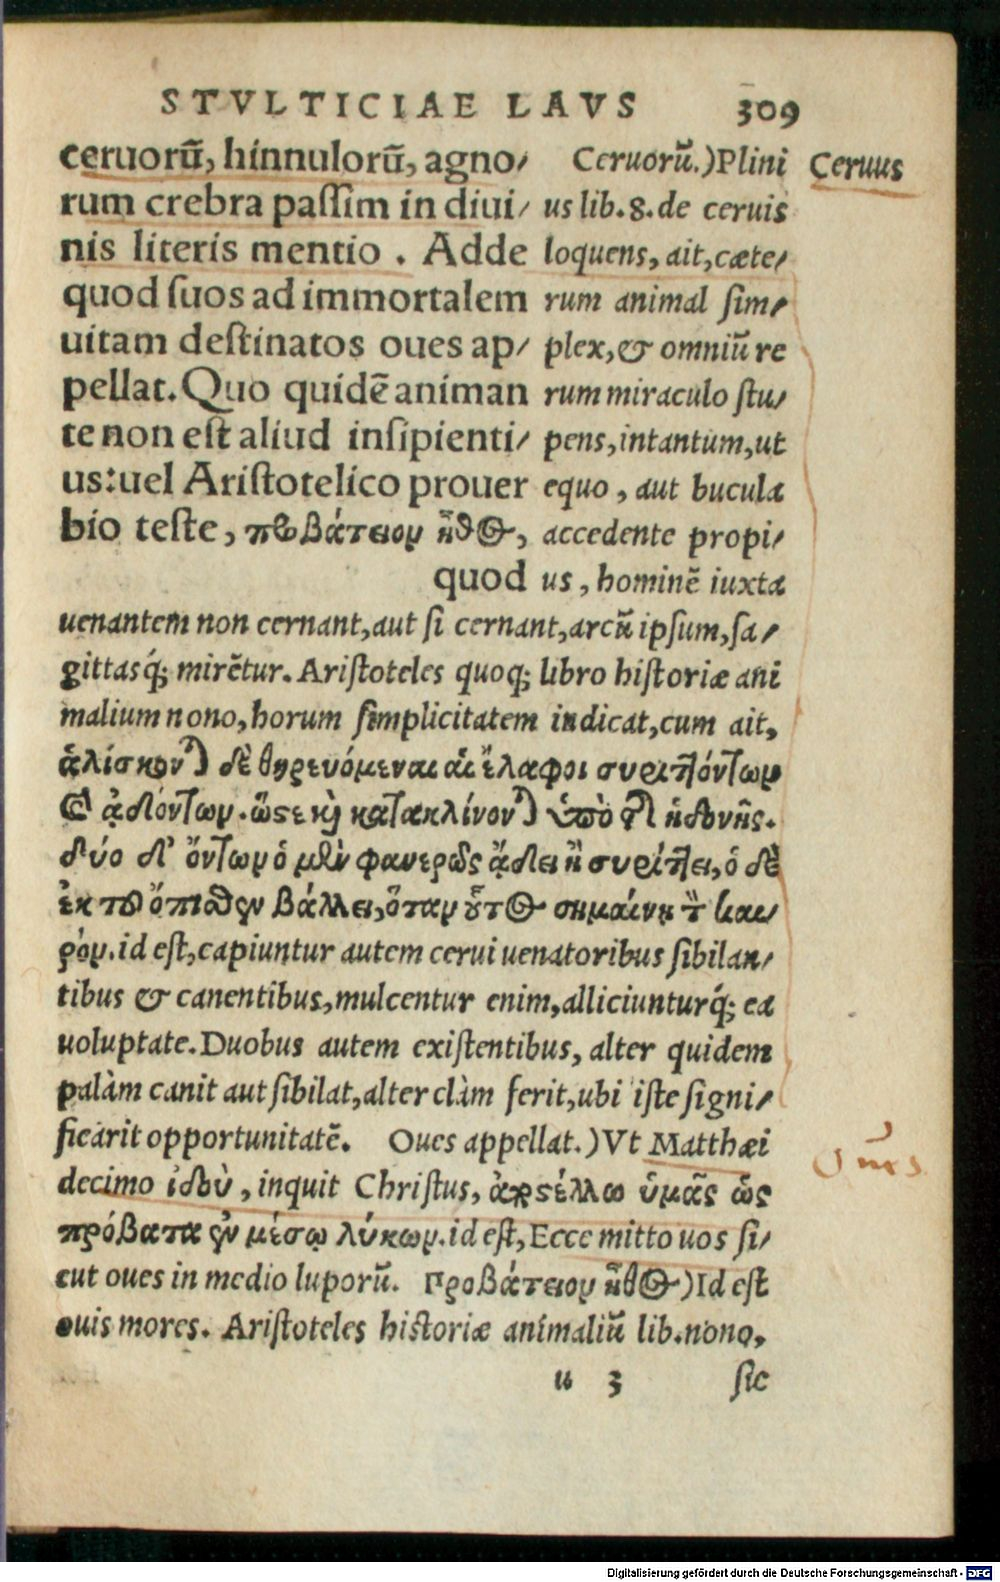 STVLTICIAE LAVS 309
ceruorũ, hinnulorũ, agno/
rum crebra passim in diui/
nis literis mentio . Adde
quod suos ad immortalem
uitam destinatos oues ap/
pellat. Quo quidẽ animan
te non est aliud insipienti/
us: uel Aristotelico prouer
bio teste, προβάτειον ἦθος,
quod
Ceruorũ.) Plini
us lib. 8. de ceruis
loquens, ait, cæte/
rum animal sim/
plex, & omniũ re
rum miraculo stu/
pens, intantum, ut
equo, aut bucula
accedente propi/
us, hominẽ iuxta
Ceruus
uenantem non cernant, aut si cernant, arcũ ipsum, sa/
gittasq́; mirẽtur. Aristoteles quoq; libro historiæ ani
malium nono, horum simplicitatem indicat, cum ait,
ἁλίσκονται δὲ θηρευόμεναι αἱ ἔλαφοι συριττόντων
καὶ ᾀδόντων. ὥστε καὶ κατακλίνονται ὑπὸ τῆς ἡδονῆς.
δύο δ' ὄντων ὁ μὲν φανερῶς ᾄδει ἢ συρίττει, ὁ δὲ
ἐκ τοῦ ὄπισθεν βάλλει, ὅταν οὗτος σημαίνῃ τὸν και/
ρόν. id est, capiuntur autem cerui uenatoribus sibilan/
tibus & canentibus, mulcentur enim, alliciunturq́; ea
uoluptate. Duobus autem existentibus, alter quidem
palàm canit aut sibilat, alter clàm ferit, ubi iste signi/
ficarit opportunitatẽ. Oues appellat.) Vt Matthæi
Oues
decimo ἰδοὺ, inquit Christus, ἀποστέλλω ὑμᾶς ὡς
πρόβατα ἐν μέσῳ λύκων. id est, Ecce mitto uos si/
cut oues in medio luporũ. Προβάτειον ἦθος) Id est
ouis mores. Aristoteles historiæ animaliũ lib. nono,
u 3 sic
Digitalisierung gefördert durch die Deutsche Forschungsgemeinschaft - DFG